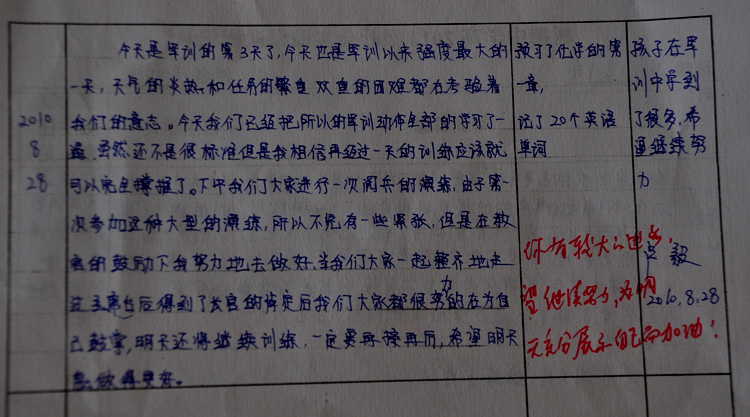 2010
8
28
今天是军训的第3天了,今天也是军训以来强度最大的
一天,天气的炎热和任务的繁重双重的困难都在考验着
我们的意志。今天我们已经把所以的军训动作全部的学习了一
遍,虽然还不是很标准但是我相信再经过一天的训练应该就
可以完全撑握了。下午我们大家进行一次阅兵的演练,由于第一
次参加这种大型的演练,所以不免有一些紧张,但是在教
官的鼓励下我努力地去做好,当我们大家一起整齐地走
过主席台后得到了长官的肯定后我们大家都很努力的在为自
己鼓掌,明天还将继续训练,一定要再接再厉,希望明天
能做得更好。
预习了化学的第
一章,
记了20个英语
单词
孩子在军
训中学到
了很多,希
望继续努
力
毅
2010.8.28
你有较大的进步,
望继续努力,为明
天充分展示自己而加油!